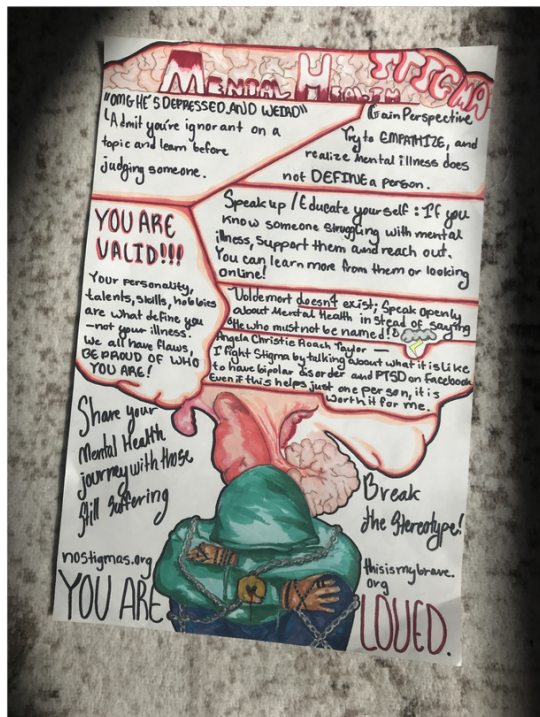 MENTAL HEALTH STIGMA
"OMG HE'S DEPRESSED AND WEIRD"
Admit you're ignorant on a
topic and learn before
judging someone.
Gain Perspective
Try to EMPATHIZE, and
realize mental illness does
not DEFINE a person.
YOU ARE
VALID!!!
Your personality,
talents, skills, hobbies
are what define you
—not your illness.
We all have flaws,
BE PROUD OF WHO
YOU ARE!
Speak up / Educate yourself: If you
know someone struggling with mental
illness, support them and reach out.
You can learn more from them or looking
online!
Voldemort doesn't exist; Speak openly
about Mental Health in stead of saying
"He who must not be named!"
Angela Christie Roach Taylor —
I fight Stigma by talking about what it is like
to have bipolar disorder and PTSD on Facebook
Even if this helps just one person, it is
worth it for me.
Share your
Mental Health
journey with those
Still Suffering
Break
the Stereotype!
nostigmas.org
thisismybrave.
org
YOU ARE
LOVED.